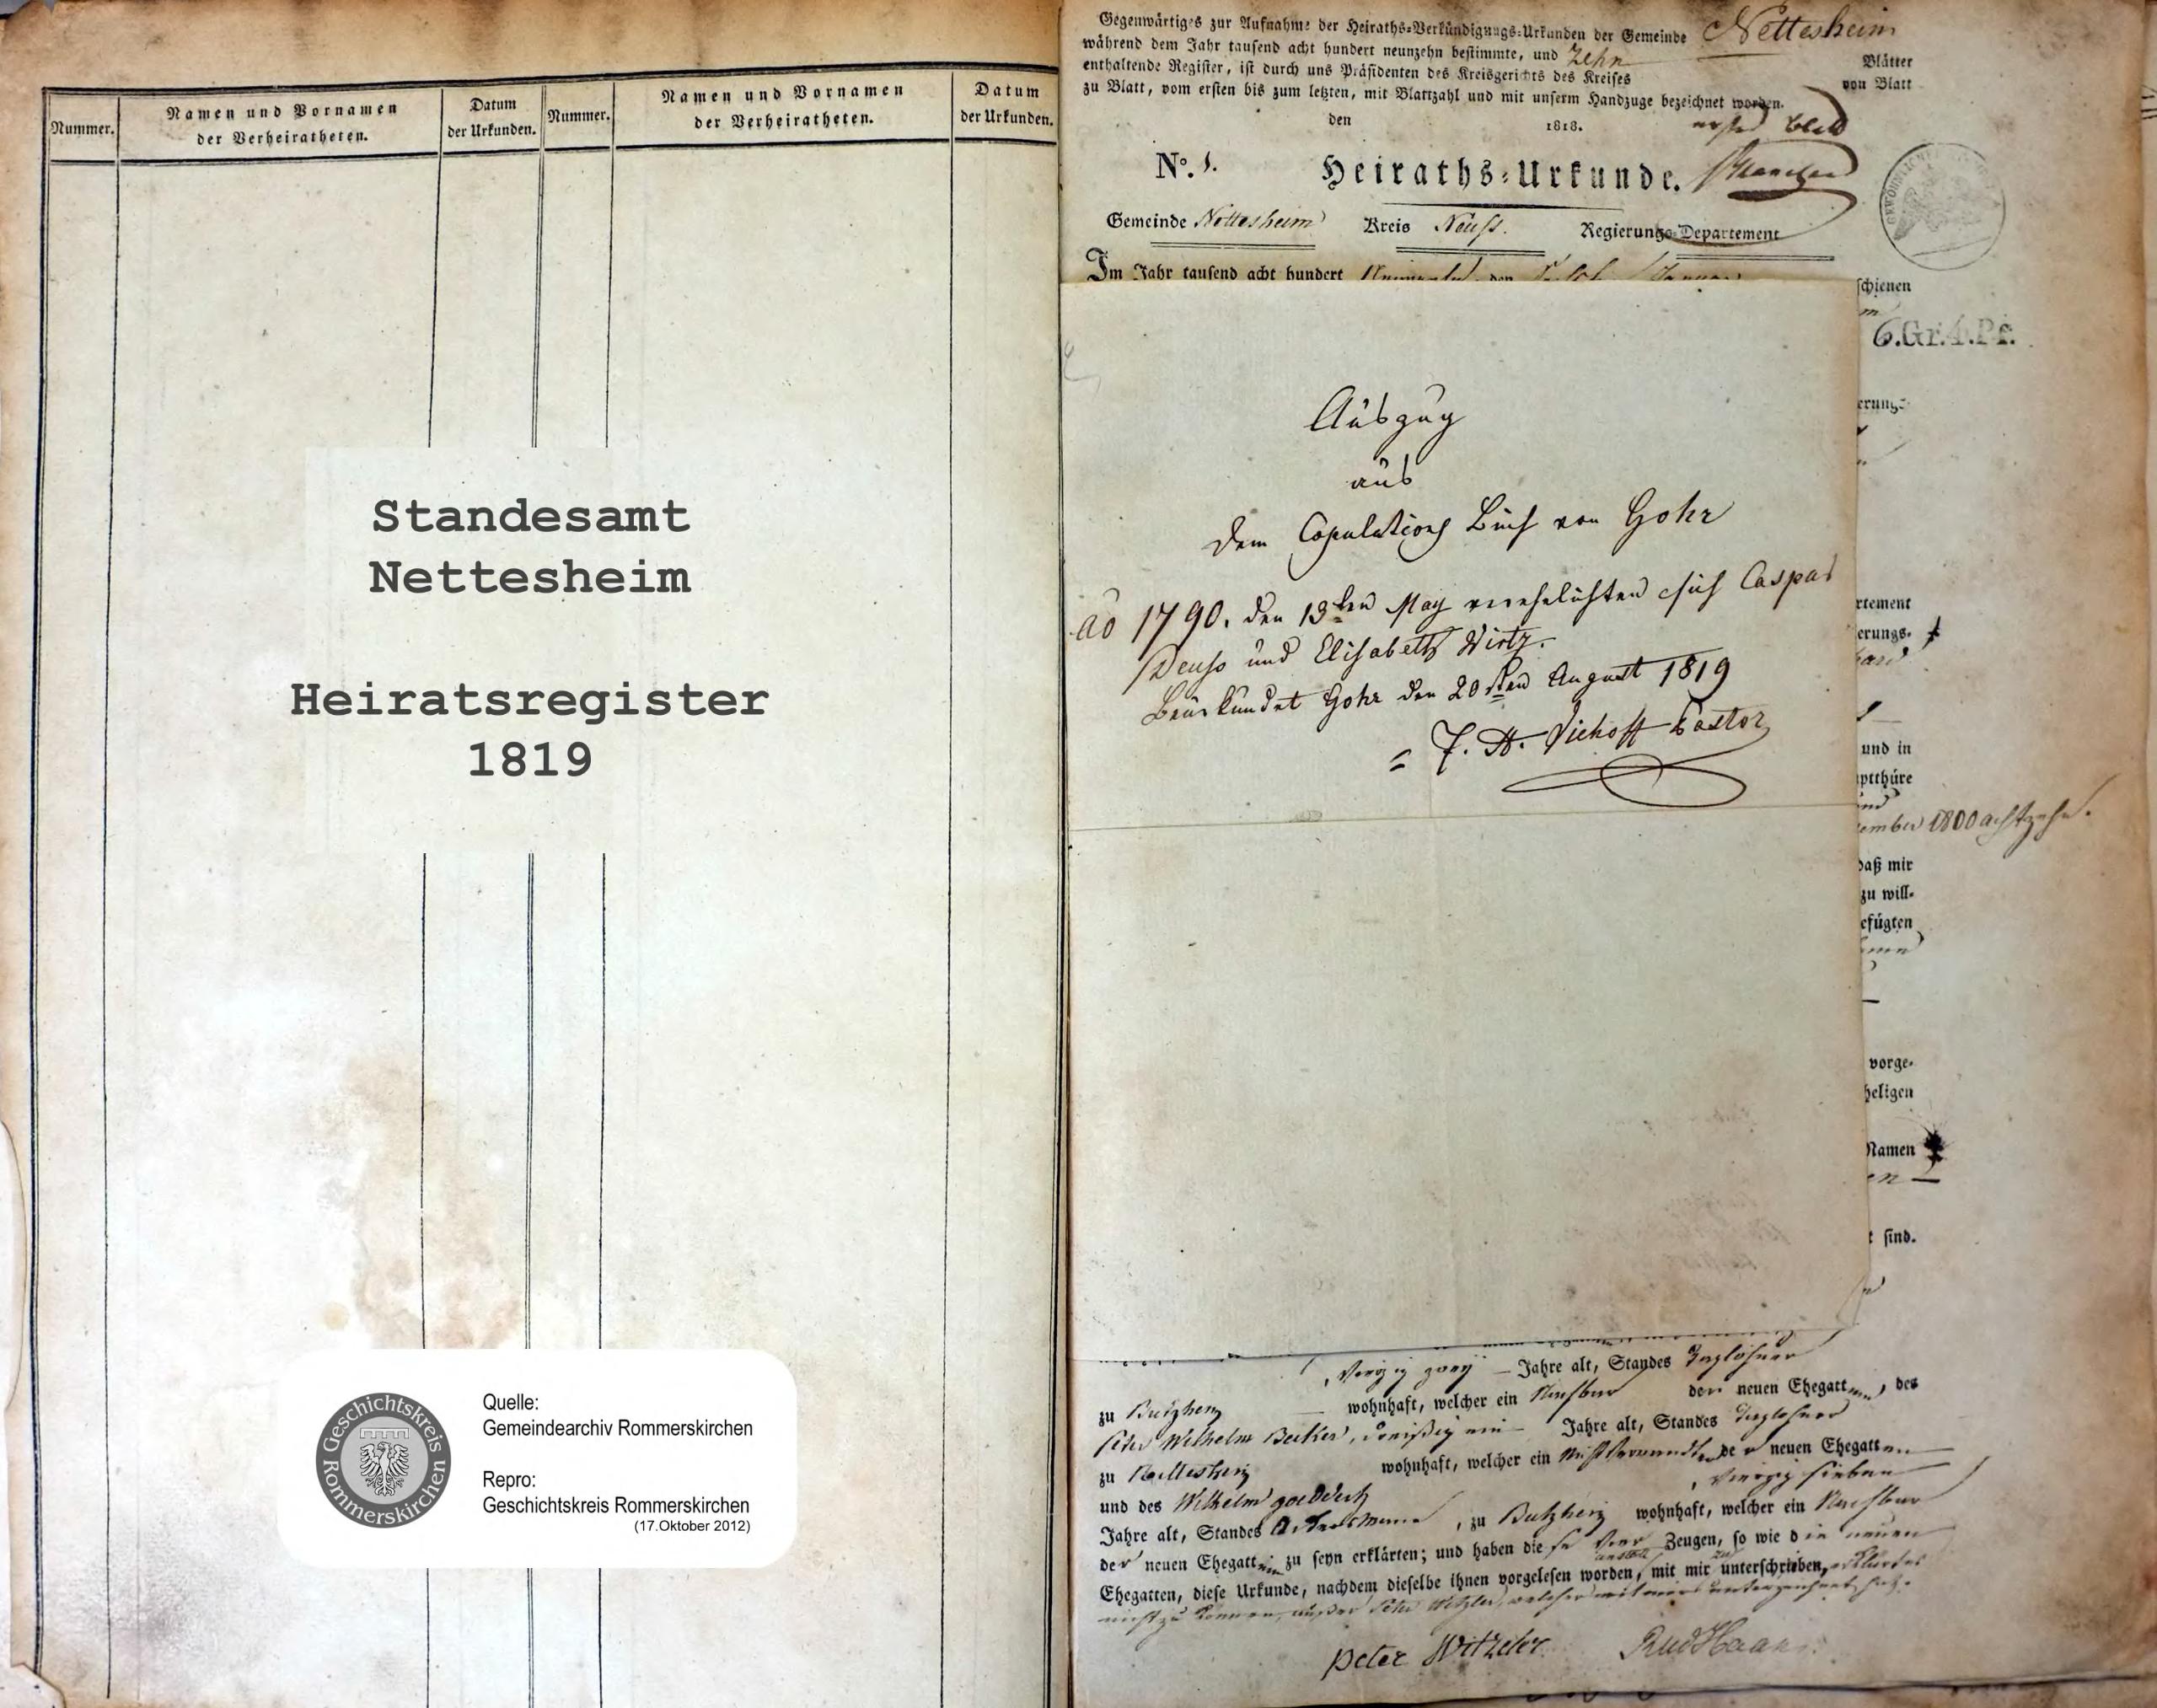 Nummer.
Namen und Vornamen
der Verheiratheten.
Datum
der Urkunden.
Nummer.
Namen und Vornamen
der Verheiratheten.
Datum
der Urkunden.
Standesamt
Nettesheim
Heiratsregister
1819
Geschichtskreis
Rommerskirchen
Quelle:
Gemeindearchiv Rommerskirchen
Repro:
Geschichtskreis Rommerskirchen
(17.Oktober 2012)
Gegenwärtiges zur Aufnahme der Heiraths-Verkündigungs-Urkunden der Gemeinde Nettesheim
während dem Jahr tausend acht hundert neunzehn bestimmte, und zehn Blätter
enthaltende Register, ist durch uns Präsidenten des Kreisgerichts des Kreises von Blatt
zu Blatt, vom ersten bis zum letzten, mit Blattzahl und mit unserm Handzuge bezeichnet worden.
den 1818.
erstes Blatt
N°. 1. Heiraths-Urkunde.
Gemeinde Nettesheim Kreis Neuss. Regierungs-Departement
Im Jahr tausend acht hundert Neunzehn den
schienen
6.Gr.4.Pf.
erungs-
Auszug
aus
dem Copulations Buch von Gohr
ao 1790. den 13ten May verehelichten sich Caspar
Deuss und Elisabeth Wirtz.
Beurkundet Gohr den 20sten August 1819
Viehoff Pastor
rtement
erungs-
und in
ptthüre
ember 1800 achtzehn.
daß mir
zu will-
efügten
vorge-
heligen
Namen
t sind.
vierzig zwey Jahre alt, Standes Taglöhner
zu Butzheim wohnhaft, welcher ein Nachbar der neuen Ehegattinn, des
Peter Wilhelm Becker, dreißig ein Jahre alt, Standes Taglöhner
zu Nettesheim wohnhaft, welcher ein Nichtverwandter der neuen Ehegatten
und des Wilhelm , vierzig sieben
Jahre alt, Standes Ackersmann, zu Butzheim wohnhaft, welcher ein Nachbar
der neuen Ehegattin zu seyn erklärten; und haben diese vier Zeugen, so wie die neuen
Ehegatten, diese Urkunde, nachdem dieselbe ihnen vorgelesen worden, mit mir zu unterschrieben, erklärten
nicht zu können, außer Peter Witzler, welcher mit mir unterzeichnet hat.
Peter Witzeler Rud Haan